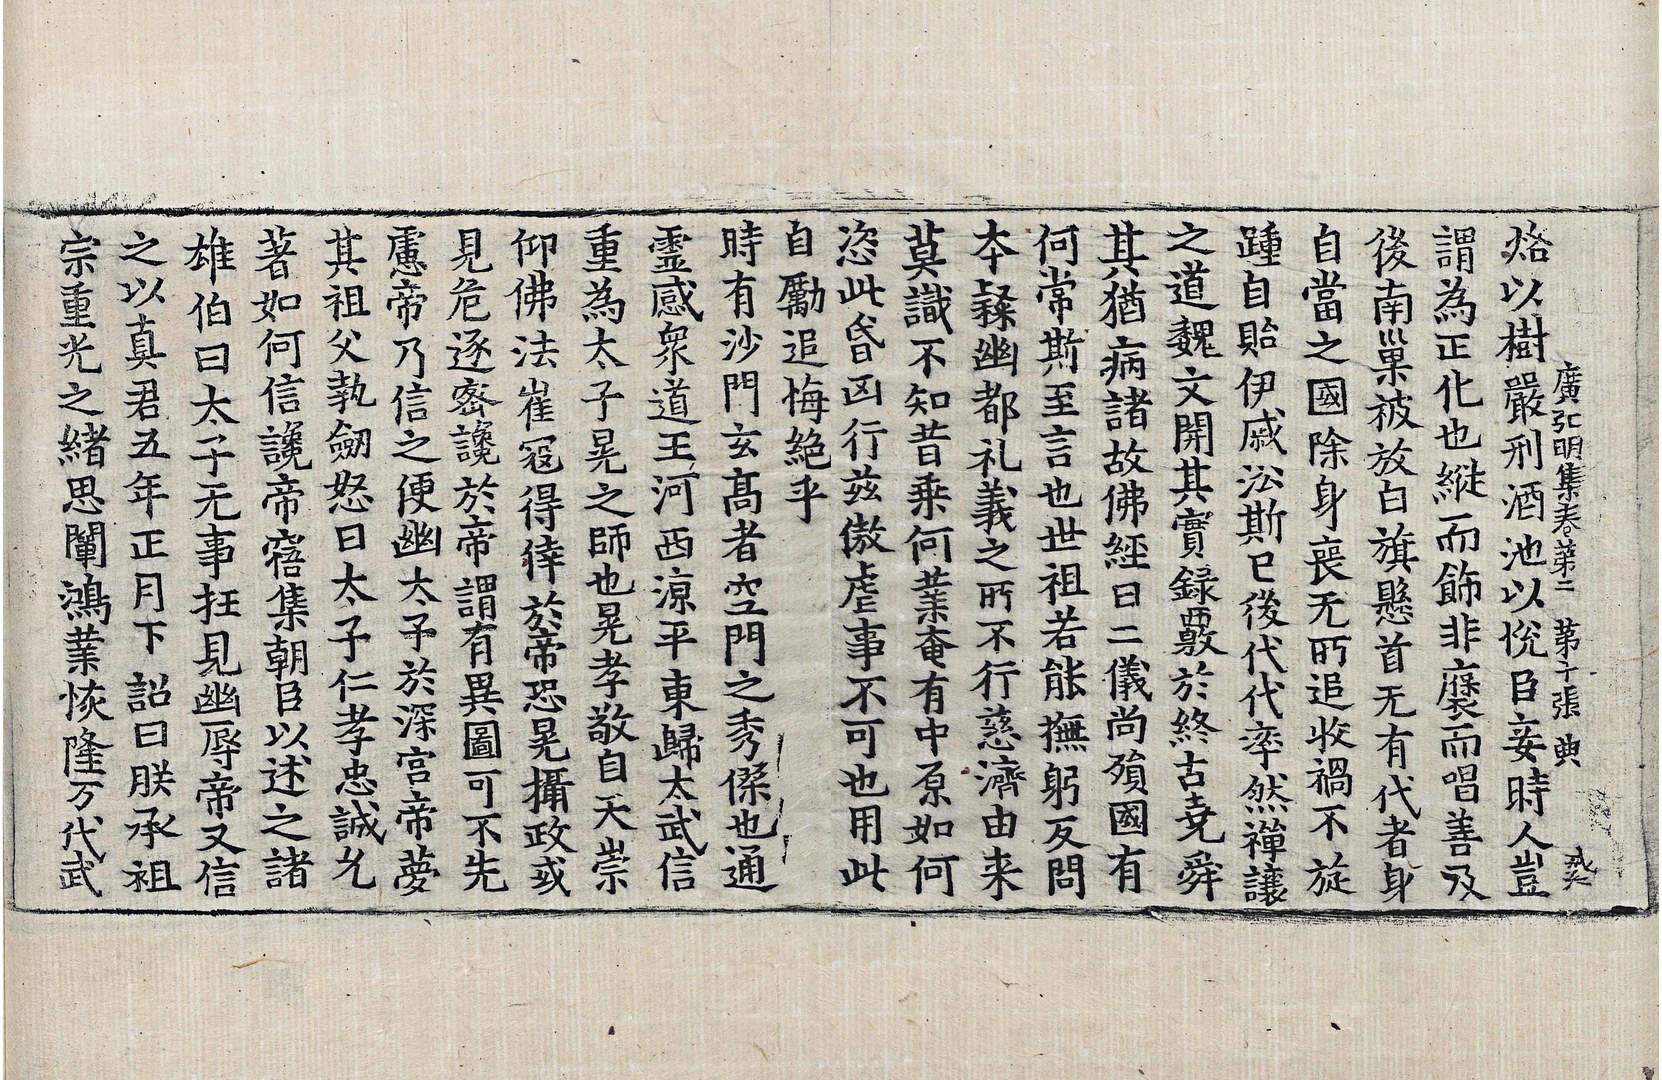 廣弘明集卷第二 第十張 典
烙以樹嚴刑酒池以悅臣妾時人豈
謂為正化也縱而飾非褒而唱善及
後南巢被放白旗懸首无有代者身
自當之國除身喪无所追收禍不旋
踵自貽伊戚汎斯已後代代率然禪讓
之道魏文開其實録覈於終古堯舜
其猶病諸故佛經曰二儀尚殞國有
何常斯至言也世祖若能撫躬反問
本繇幽都礼義之所不行慈濟由来
莫識不知昔乗何業奄有中原如何
恣此昏凶行茲傲虐事不可也用此
自勵追悔絶乎
時有沙門玄髙者空門之秀傑也通
靈感衆道王河西涼平東歸太武信
重為太子晃之師也晃孝敬自天崇
仰佛法崔冦得倖於帝恐晃攝政或
見危逐密讒於帝謂有異圖可不先
慮帝乃信之便幽太子於深宫帝夢
其祖父執劒怒曰太子仁孝忠誠允
著如何信讒帝寤集朝臣以述之諸
雄伯曰太子无事枉見幽辱帝又信
之以真君五年正月下詔曰朕承祖
宗重光之緒思闡鴻業恢隆万代武